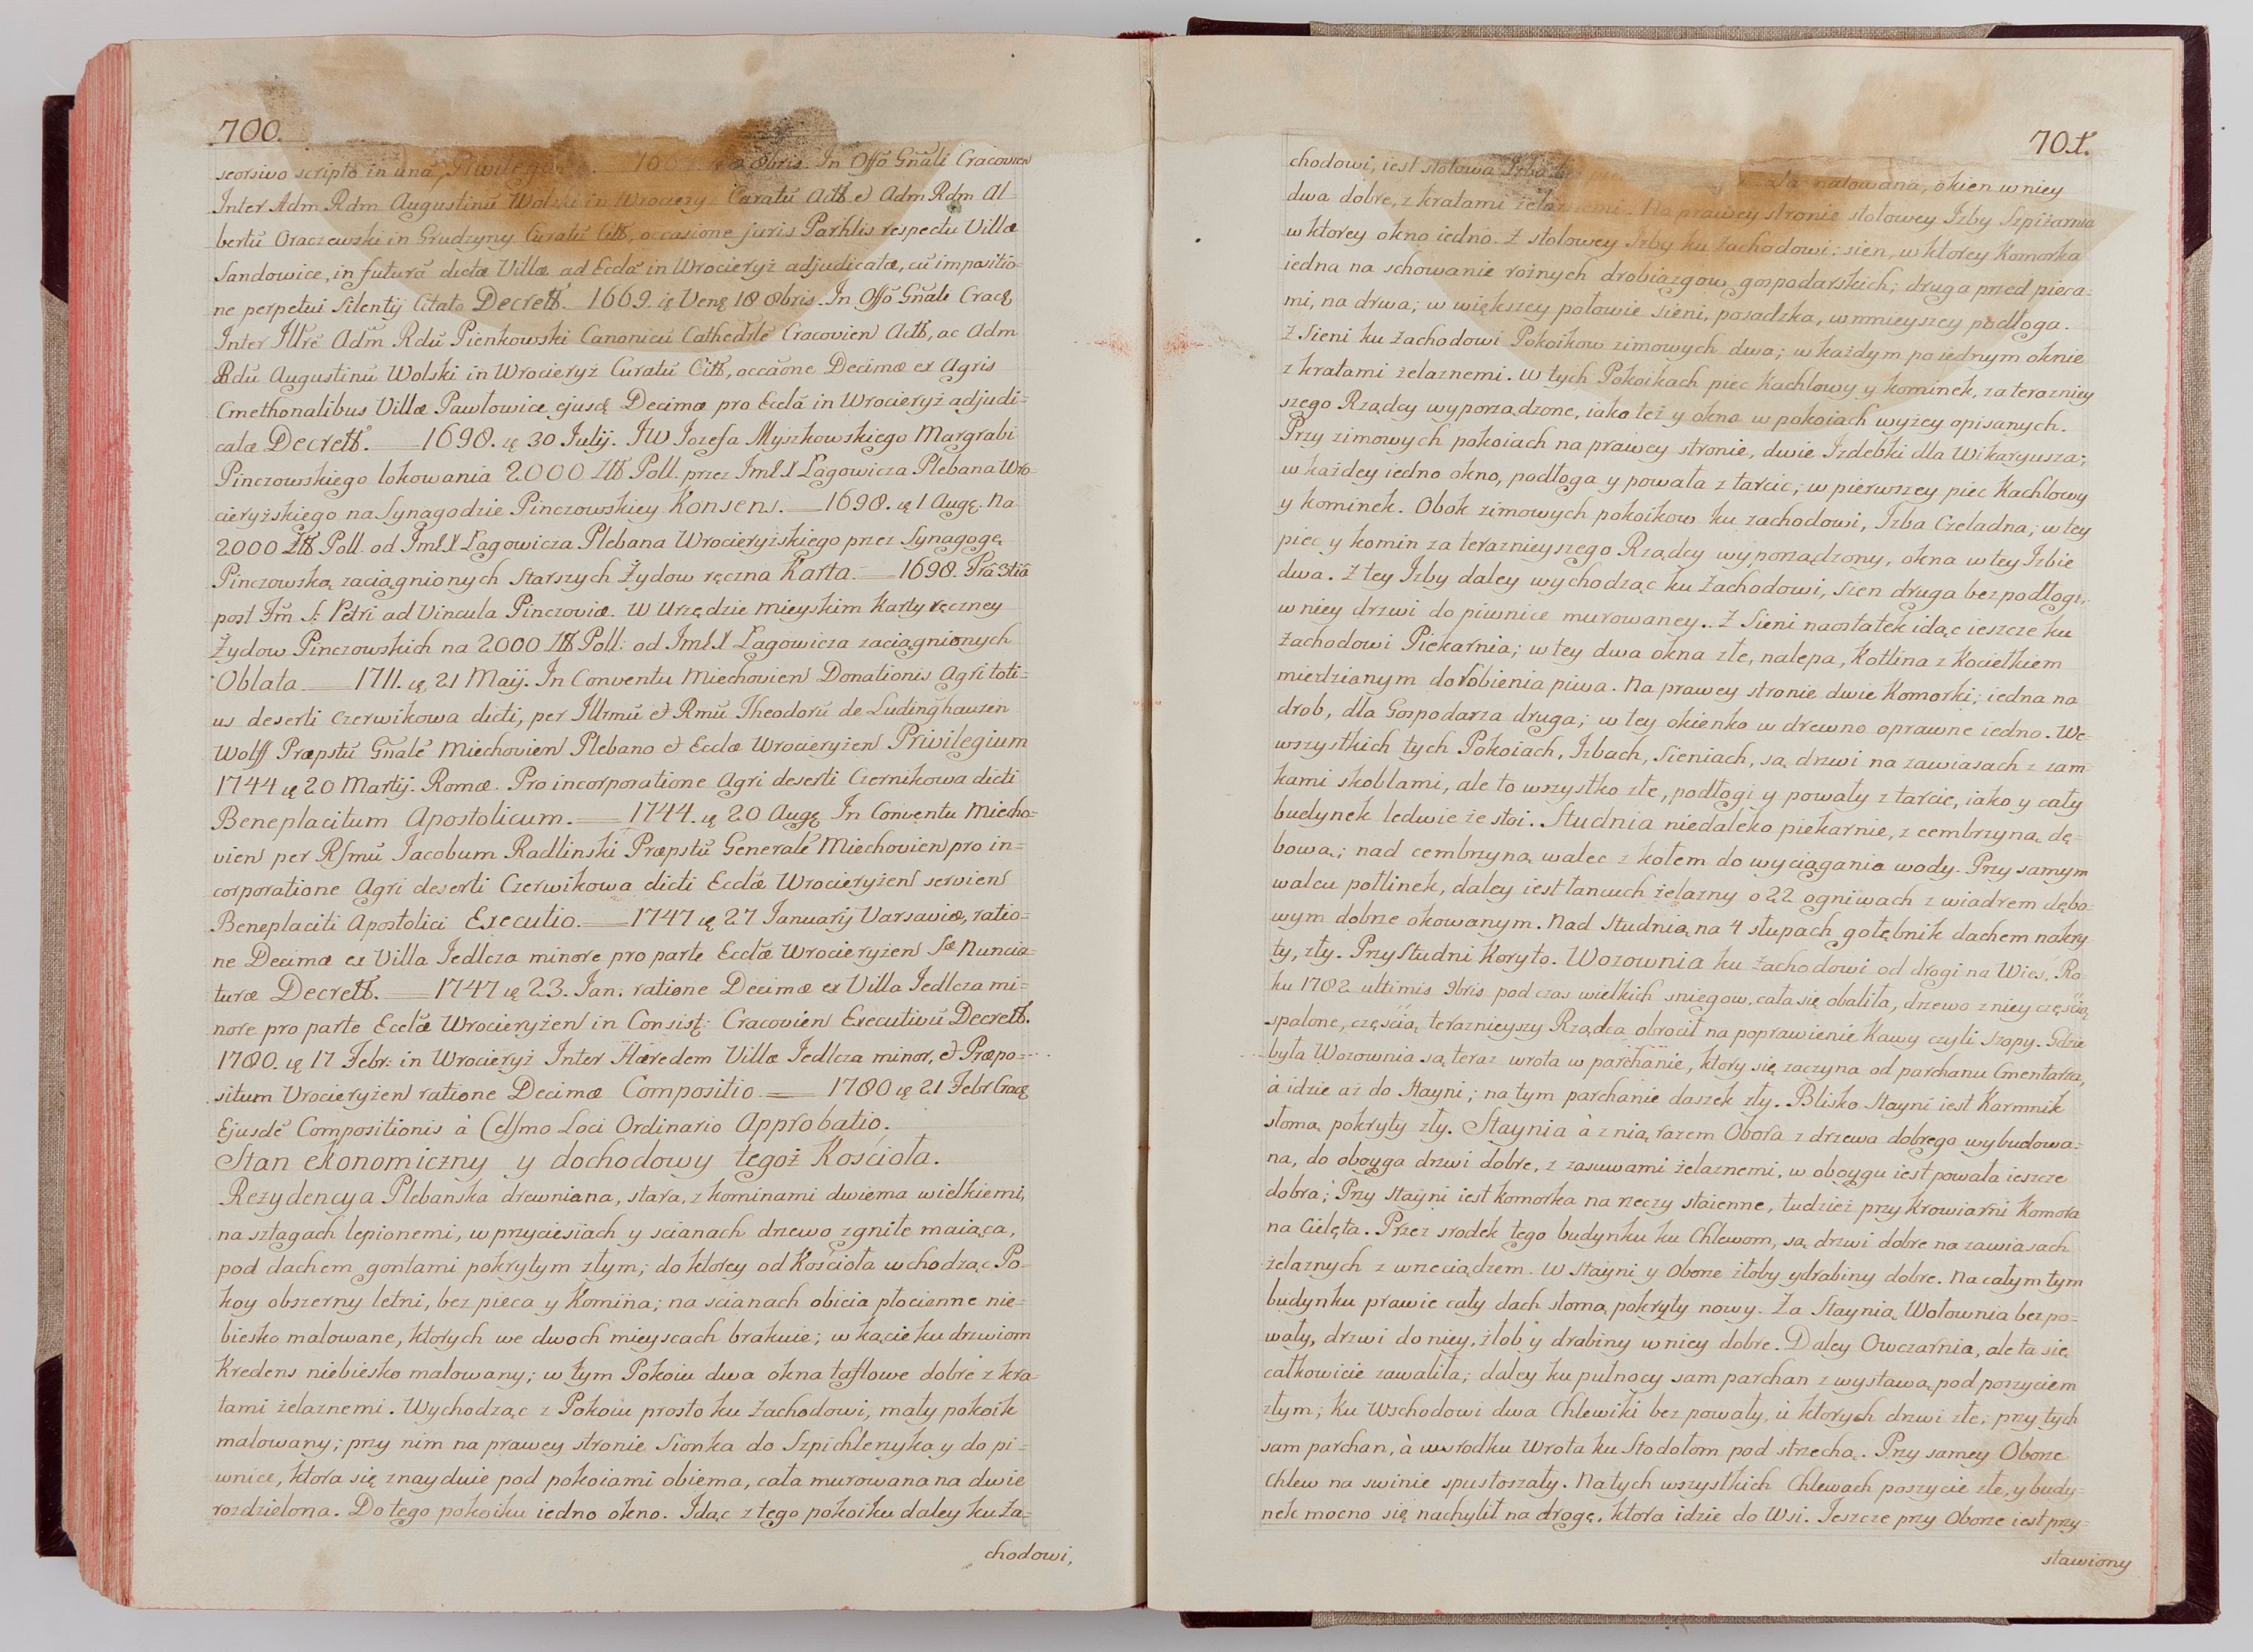 700.
seorsivo scripto in unâ, Privilegium 8bris. In Offo Gñali Cracovien
Inter Adm Rdm Augustinũ Wolski in Wrocieryż Curatũ Actt. et Adm Rdm Al=
bertũ Oraczewski in Grudzyny Curatũ Citt, occasione juris Parhlis respectu Villæ
Sandowice, in futurâ dictæ Villæ ad Ecclã in Wrocieryż adjudicatæ, cũ impositio=
ne perpetui Silentij Citato Decrett. — 1669. ię Venę 18 8bris. In Offo Gñali Cracę
Inter Illrẽ Adm̃ Rdũ Pienkowski Canonicũ Cathedrlẽ Cracovien Actt, ac Adm
Rdũ Augustinũ Wolski in Wrocieryż Curatũ Citt, occãone Decimæ ex Agris
Cmethonalibus Villæ Pawłowice ejusdę Decimæ pro Ecclã in Wrocieryż adjudi=
catæ Decrett. — 1698. ię 30 Julij. JW Jozefa Myszkowskiego Margrabi
Pinczowskiego lokowania 2000 Ztt Poll. przez ImęX Łagowicza Plebana Wro=
cieryżskiego na Synagodzie Pinczowskiey Konsens. — 1698. ię 1 Augę. Na
2000 Ztt Poll. od ImęX Łagowicza Plebana Wrocieryżskiego przez Synagogę
Pinczowską zaciągnionych Starszych Żydow ręczna Karta. — 1698. Fra 3tia
post Fm S: Petri ad Vincula Pinczoviæ. W Urzędzie Mieyskim Karty ręczney
Żydow Pinczowskich na 2000 Ztt Poll: od ImęX Łagowicza zaciągnionych
Oblata — 1711. ię 21 Maij. In Conventu Miechovien Donationis Agri toti=
us deserti Czerwikowa dicti, per Illrmũ et Rmũ Theodorũ de Ludinghauzen
Wolff Præpstũ Gñalẽ Miechovien Plebano et Ecclæ Wrocieryżen Privilegium
1744 ię 20 Martij. Romæ. Pro incorporatione Agri deserti Czernikowa dicti
Beneplacitum Apostolicum. — 1744. ię 20 Augę In Conventu Miecho=
vien per Rsmũ Jacobum Radlinski Præpstũ Generalẽ Miechovien pro in=
corporatione Agri deserti Czerwikowa dicti Ecclæ Wrocieryżen servien
Beneplaciti Apostolici Executio. — 1747 ię 27 Januarij Varsaviæ, ratio=
ne Decimæ ex Villa Jedlcza minore pro parte Ecclæ Wrocieryżen Sæ Nuncia=
turæ Decrett. — 1747 ię 23. Jan: ratione Decimæ ex Villa Jedlcza mi=
nore pro parte Ecclæ Wrocieryżen in Consist: Cracovien Executivũ Decrett.
1780. ię 17 Febr: in Wrocieryż Inter Hæredem Villæ Jedlcza minor, et Præpo=
situm Wrocieryżen ratione Decimæ Compositio. — 1780 ię 21 Febr Cracę
Ejusdẽ Compositionis à Celsmo Loci Ordinario Approbatio.
Stan ekonomiczny y dochodowy tegoż Kościoła.
Rezydencya Plebanska drewniana, stara, z kominami dwiema wielkiemi,
na sztagach lepionemi, w przyciesiach y scianach drzewo zgniłe maiąca,
pod dachem gontami pokrytym złym; do ktorey od Kościoła wchodząc Po=
koy obszerny letni, bez pieca y Komina; na scianach obicia płocienne nie=
biesko malowane, ktorych we dwoch mieyscach brakuie; w kącie ku drzwiom
Kredens niebiesko malowany; w tym Pokoiu dwa okna taflowe dobre z kra=
tami żelaznemi. Wychodząc z Pokoiu prosto ku Zachodowi, mały pokoik
malowany; przy nim na prawey stronie Sionka do Szpichlerzyka y do pi=
wnice, ktora się znayduie pod pokoiami obiema, cała murowana na dwie
rozdzielona. Do tego pokoiku iedno okno. Idąc z tego pokoiku daley ku Za=
chodowi,
701.
chodowi, iest stołowa Izba malowana, okien w niey
dwa dobre, z kratami żelaznemi. Na prawey stronie stołowey Izby Szpiżarnia
w ktorey okno iedno. Z stołowey Izby ku Zachodowi; sien, w ktorey Komorka
iedna na schowanie rożnych drobiazgow gospodarskich; druga przed pieca=
mi, na drwa; w większey połowie sieni, posadzka, w mnieyszey podłoga.
Z Sieni ku Zachodowi Pokoikow zimowych dwa; w każdym po iednym oknie
z kratami żelaznemi. W tych Pokoikach piec Kachlowy y kominek, za terazniey
szego Rządcy wyporządzone, iako też y okna w pokoiach wyżey opisanych.
Przy zimowych pokoiach na prawey stronie, dwie Izdebki dla Wikaryusza;
w każdey iedno okno, podłoga y powała z tarcic; w pierwszey piec Kachlowy
y kominek. Obok zimowych pokoikow ku zachodowi, Izba Czeladna; w tey
piec y komin za teraznieyszego Rządcy wyporządzony, okna w tey Izbie
dwa. Z tey Izby daley wychodząc ku Zachodowi, Sien druga bez podłogi,
w niey drzwi do piwnice murowaney. Z Sieni naostatek idąc ieszcze ku
Zachodowi Piekarnia; w tey dwa okna złe, nalepa, Kotlina z Kociełkiem
miedzianym do robienia piwa. Na prawey stronie dwie Komorki; iedna na
drob, dla Gospodarza druga; w tey okienko w drewno oprawne iedno. We
wszystkich tych Pokoiach, Izbach, Sieniach, są drzwi na zawiasach z zam=
kami skoblami, ale to wszystko złe, podłogi y powały z tarcic, iako y cały
budynek ledwie że stoi. Studnia niedaleko piekarnie, z cembrzyną dę=
bową; nad cembrzyną walec z kołem do wyciągania wody. Przy samym
walcu potlinek, daley iest łancuch żelazny o 22 ogniwach z wiadrem dębo=
wym dobrze okowanym. Nad Studnią na 4 słupach gołębnik dachem nakry=
ty, zły. Przy Studni Koryto. Wozownia ku Zachodowi od drogi na Wies, Ro=
ku 1782 ultimis 9bris podczas wielkich sniegow, cała się obaliła, drzewo z niey częścią
spalone, częścią teraznieyszy Rządca obrocił na poprawienie Kawy czyli Szopy. Gdzie
była Wozownia są teraz wrota w parchanie, ktory się zaczyna od parchanu Cmentarza,
à idzie aż do Stayni; na tym parchanie daszek zły. Blisko Stayni iest Karmnik
słomą pokryty zły. Staynia à z nią razem Obora z drzewa dobrego wybudowa=
na, do oboyga drzwi dobre, z zasuwami żelaznemi, w oboygu iest powała ieszcze
dobra; Przy Stayni iest komorka na rzeczy staienne, tudzież przy Krowiarni Komora
na Cielęta. Przez srodek tego budynku ku Chlewom, są drzwi dobre na zawiasach
żelaznych z wrzeciądzem. W Stayni y Oborze żłoby y drabiny dobre. Na całym tym
budynku prawie cały dach słomą pokryty nowy. Za Staynią, Wołownia bez po=
wały, drzwi do niey, żłob y drabiny w niey dobre. Daley Owczarnia, ale ta się
całkowicie zawaliła; daley ku pułnocy sam parchan z wystawą pod poszyciem
złym; Ku Wschodowi dwa Chlewiki bez powały, u ktorych drzwi złe; przy tych
sam parchan, à w srodku Wrota ku Stodołom pod strzechą. Przy samey Oborze
Chlew na swinie spustoszały. Na tych wszystkich Chlewach poszycie złe, y budy=
nek mocno się nachylił na drogę, ktora idzie do Wsi. Jeszcze przy Oborze iest przy=
stawiony